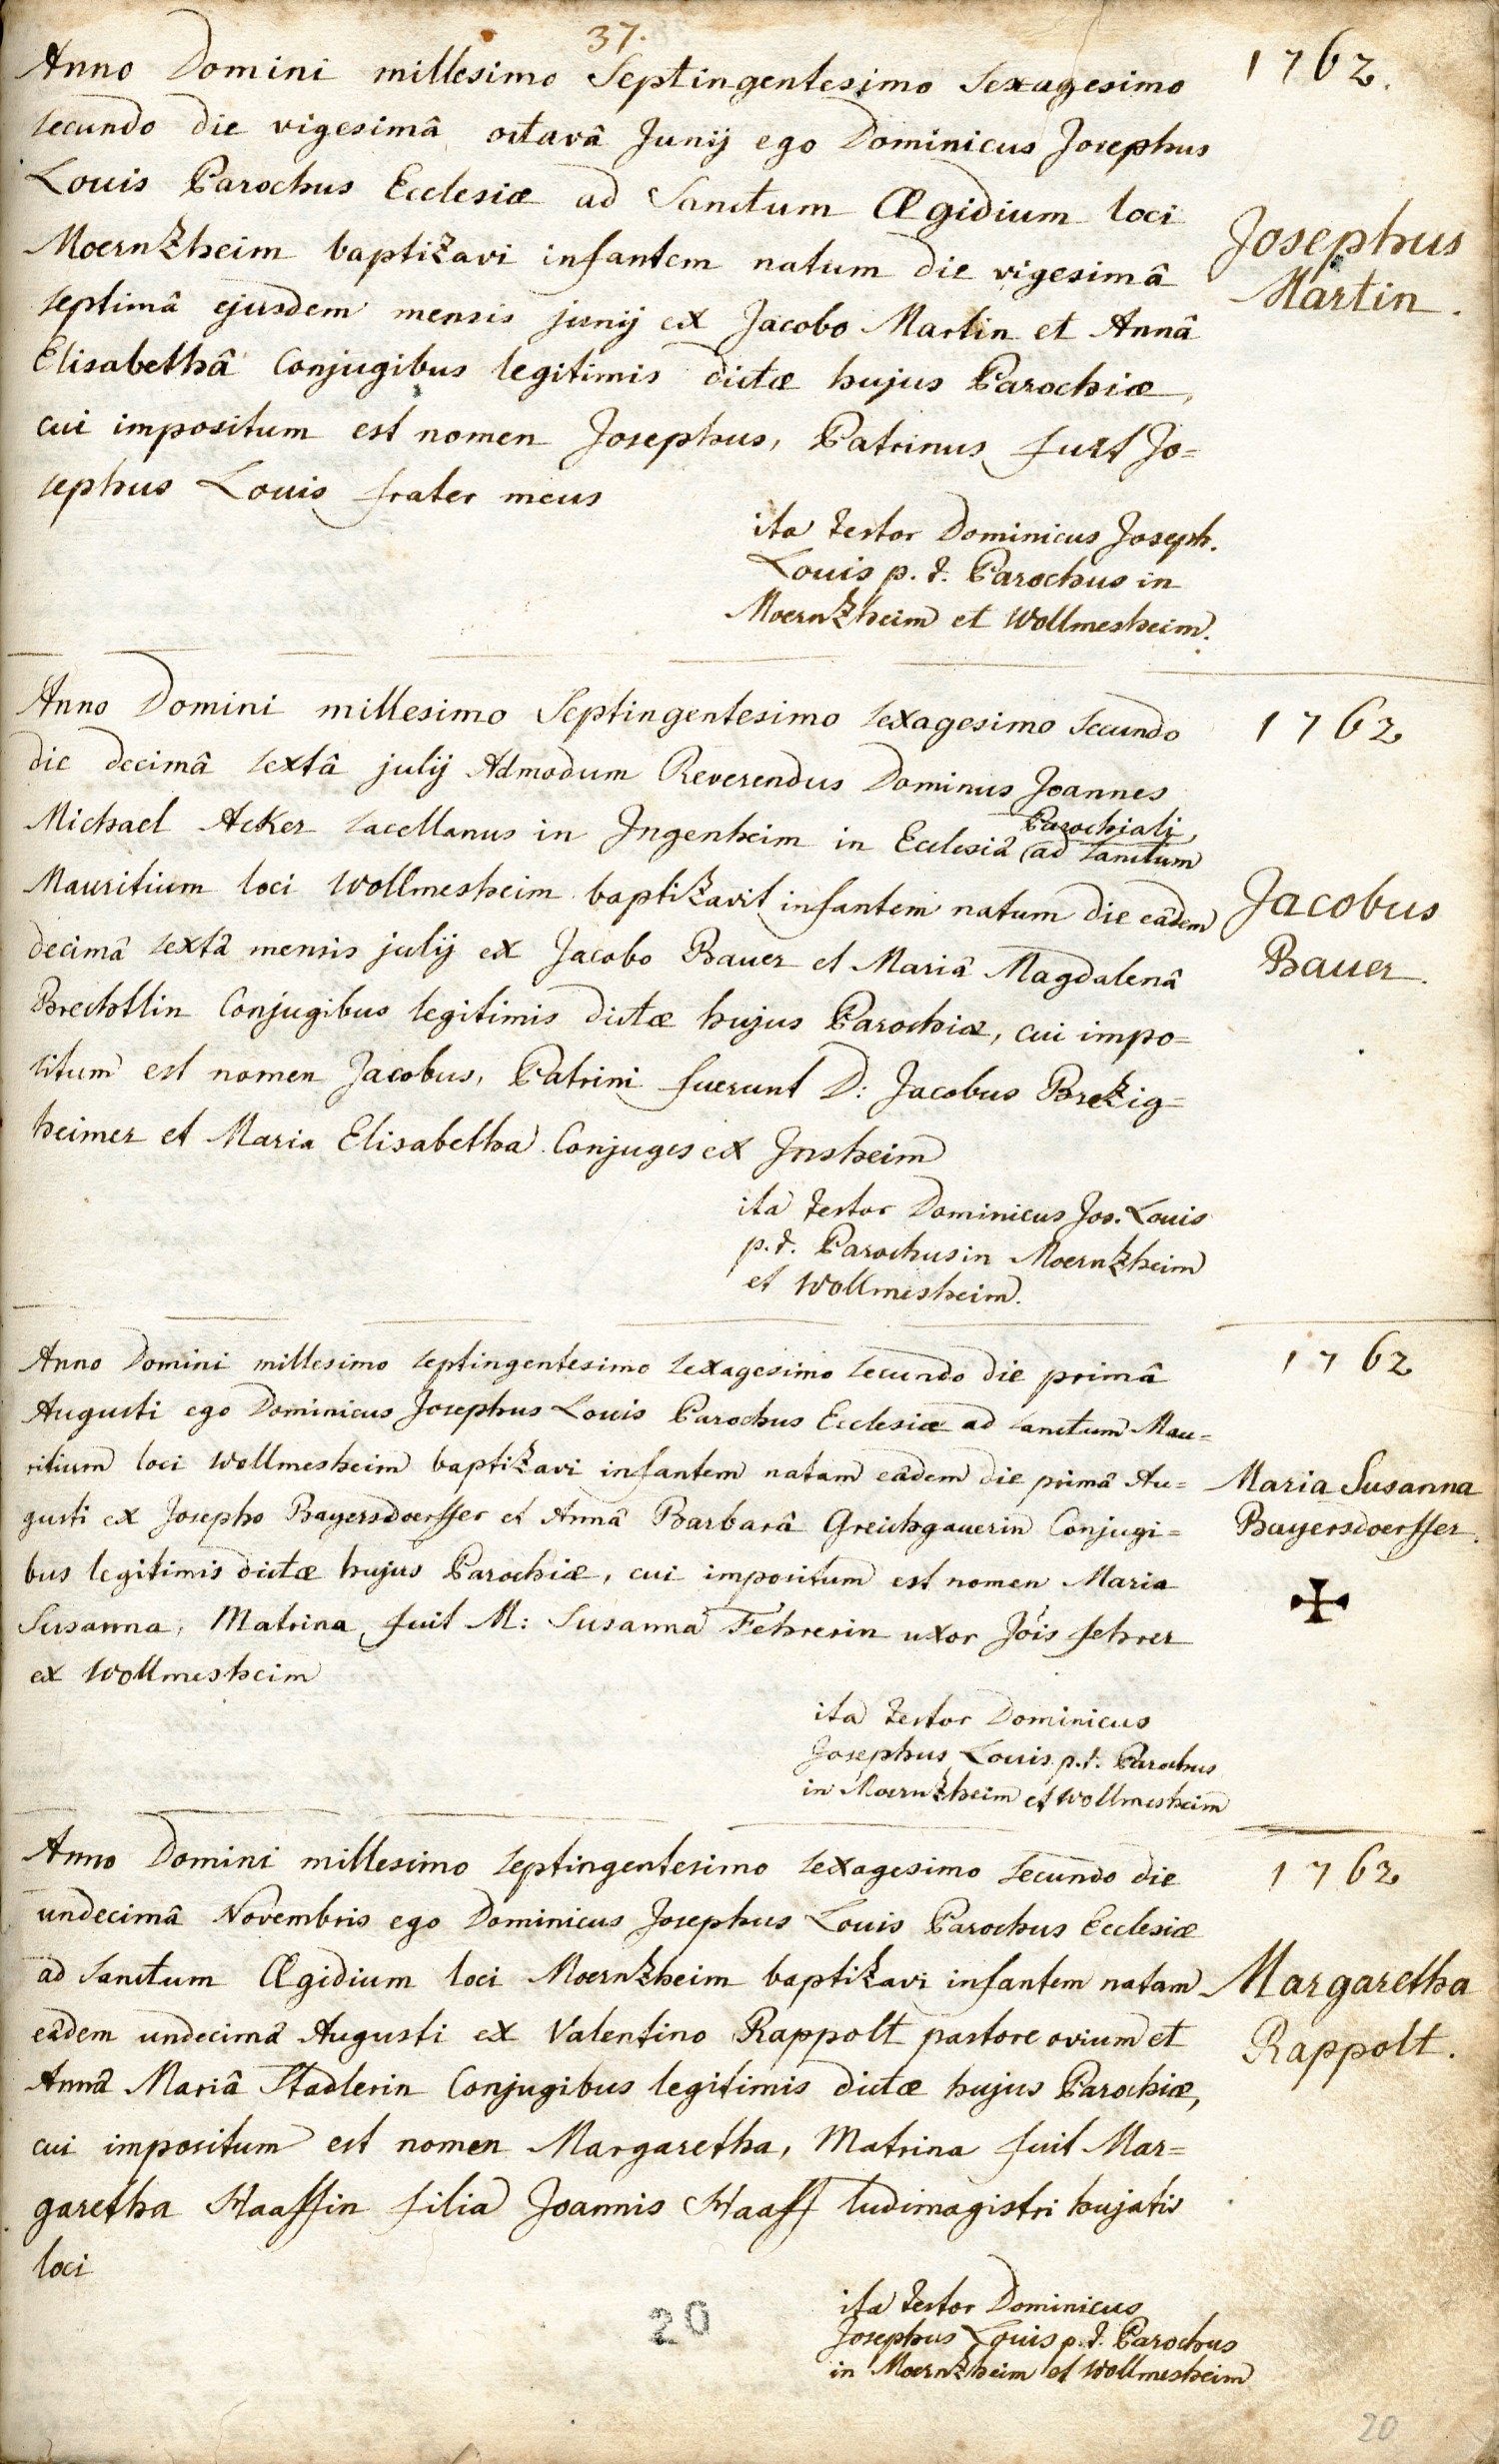 37.
Anno Domini millesimo Septingentesimo Sexagesimo
1762.
secundo die vigesimâ octavâ Junij ego Dominicus Josephus
Louis Parochus Ecclesiæ ad Sanctum Ægidium loci
Moernzheim baptizavi infantem natum die vigesimâ
Josephus
Martin.
septimâ ejusdem mensis junij ex Jacobo Martin et Annâ
Elisabethâ Conjugibus legitimis dictæ hujus Parochiæ,
cui impositum est nomen Josephus, Patrinus fuit Jo=
sephus Louis frater meus
ita testor Dominicus Joseph.
Louis p. t. Parochus in
Moernzheim et Wollmesheim.
Anno Domini millesimo Septingentesimo sexagesimo secundo
1762
die decimâ sextâ julij Admodum Reverendus Dominus Joannes
Michael Acker sacellanus in Jngenheim in Ecclesiâ Parochiali, ad sanctum
Mauritium loci Wollmesheim baptizavit infantem natum die eâdem
Jacobus
Bauer.
decimâ sextâ mensis julij ex Jacobo Bauer et Mariâ Magdalenâ
Brechtlin Conjugibus legitimis dictæ hujus Parochiæ, cui impo=
situm est nomen Jacobus, Patrini fuerunt D: Jacobus Brezig=
heimer et Maria Elisabetha Conjuges ex Jnsheim
ita testor Dominicus Jos. Louis
p. t. Parochus in Moernzheim
et Wollmesheim.
Anno Domini millesimo septingentesimo sexagesimo secundo die primâ
1762
Augusti ego Dominicus Josephus Louis Parochus Ecclesiæ ad sanctum Mau=
ritium loci Wollmesheim baptizavi infantem natam eâdem die primâ Au=
Maria Susanna
Bayersdoerffer.
gusti ex Josepho Bayersdoerffer et Annâ Barbarâ Greichgauerin Conjugi=
bus legitimis dictæ hujus Parochiæ, cui impositum est nomen Maria
Susanna, Matrina fuit M: Susanna Fehrerin uxor Jois fehrer
ex Wollmesheim
ita testor Dominicus
Josephus Louis p. t. Parochus
in Moernzheim et Wollmesheim
Anno Domini millesimo septingentesimo sexagesimo secundo die
1762
undecimâ Novembris ego Dominicus Josephus Louis Parochus Ecclesiæ
ad sanctum Ægidium loci Moernzheim baptizavi infantem natam
Margaretha
Rappolt.
eâdem undecimâ Augusti ex Valentino Rappolt pastore ovium et
Annâ Mariâ Stadlerin Conjugibus legitimis dictæ hujus Parochiæ,
cui impositum est nomen Margaretha, Matrina fuit Mar=
garetha Haaffin filia Joannis Haaff ludimagistri hujatis
loci
ita testor Dominicus
Josephus Louis p. t. Parochus
in Moernzheim et Wollmesheim
20
20